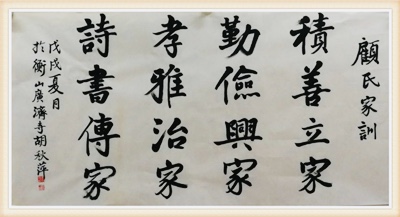 顧氏家訓
積善立家
勤儉興家
孝雅治家
詩書傳家
戊戌夏月
於衡山廣濟寺胡秋萍